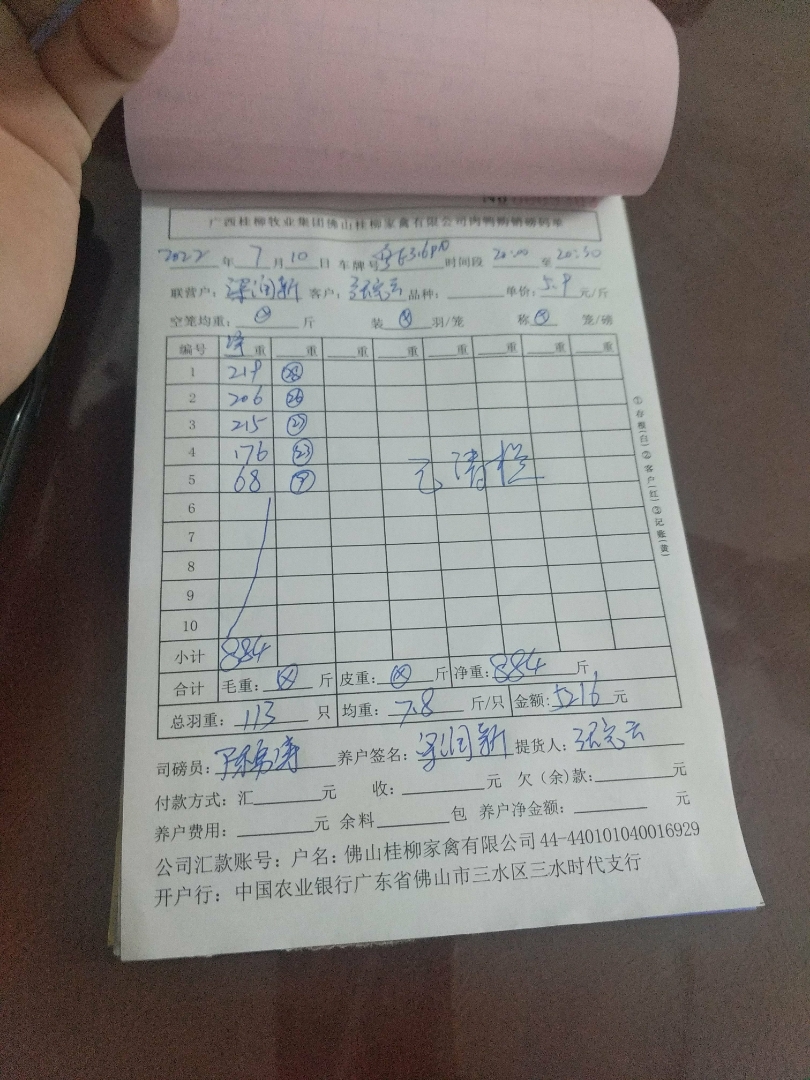 广西桂柳牧业集团佛山桂柳家禽有限公司肉鸭购销磅码单
2022年 7月 10日 车牌号 时间段 20:00 至 20:30
联营户: 梁润新 客户: 品种: 单价: 5.9 元/斤
空笼均重: ⊗ 斤 装 ⊗ 羽/笼 称 ⊗ 笼/磅
编号 净重 重 重 重 重 重 重 重
1 219 28
2 206 26
3 215 27
4 176 23
5 68 9 已清栏
6
7
8
9
10
小计 884
合计 毛重: ⊗ 斤 皮重: ⊗ 斤 净重: 884 斤
总羽重: 113 只 均重: 7.8 斤/只 金额: 5216 元
司磅员: 养户签名: 梁润新 提货人:
付款方式: 汇 元 收: 元 欠(余)款: 元
养户费用: 元 余料 包 养户净金额: 元
公司汇款账号: 户名: 佛山桂柳家禽有限公司 44-440101040016929
开户行: 中国农业银行广东省佛山市三水区三水时代支行
①存根(白)②客户(红)③记账(黄)